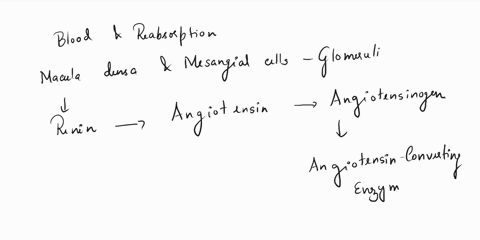 Blood & Reabsorption
Macula densa & Mesangial cells - Glomeruli
Renin → Angiotensin → Angiotensinogen
Angiotensin-Converting
Enzym